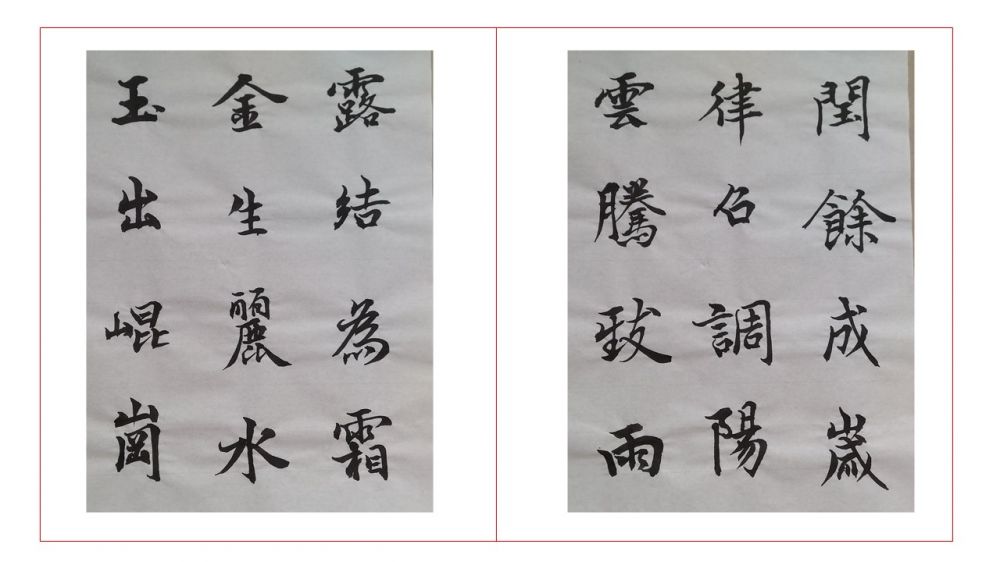 閏餘成歲
律召調陽
雲騰致雨
露結為霜
金生麗水
玉出崐崗